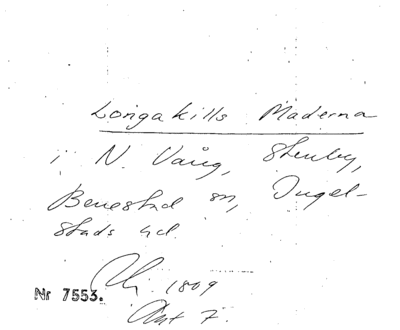 Longakills Maderna
i N. Vång, Stenby,
Benestad sn, Ingel-
stads hd.
1809
Nr 7553.
Akt 7.